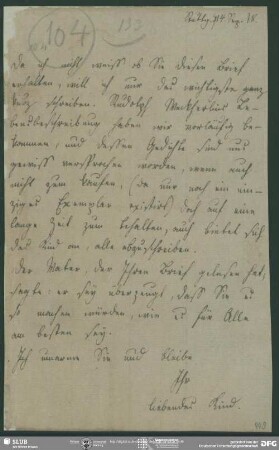 104
133
Da ich nicht weiss ob Sie diesen Brief
erhalten, will ich nur das wichtigste ganz
kurz schreiben. Rudolph Weckherlins Le-
bensbeschreibung haben wir vorläufig be-
kommen, und dessen Gedichte sind uns
gewiss versprochen worden, wenn auch
nicht zum kaufen, (da nur noch ein ein-
ziges Exemplar existirt) doch auf eine
lange Zeit zum behalten, auch bietet sich
das Kind an, alle abzuschreiben.
Der Vater, der Ihren Brief gelesen hat,
sagte er sey überzeugt, dass Sie
es machen würden, wie für Alle
am besten sey.
Ich umarme Sie und bleibe
Ihr
liebendes Kind.
SLUB